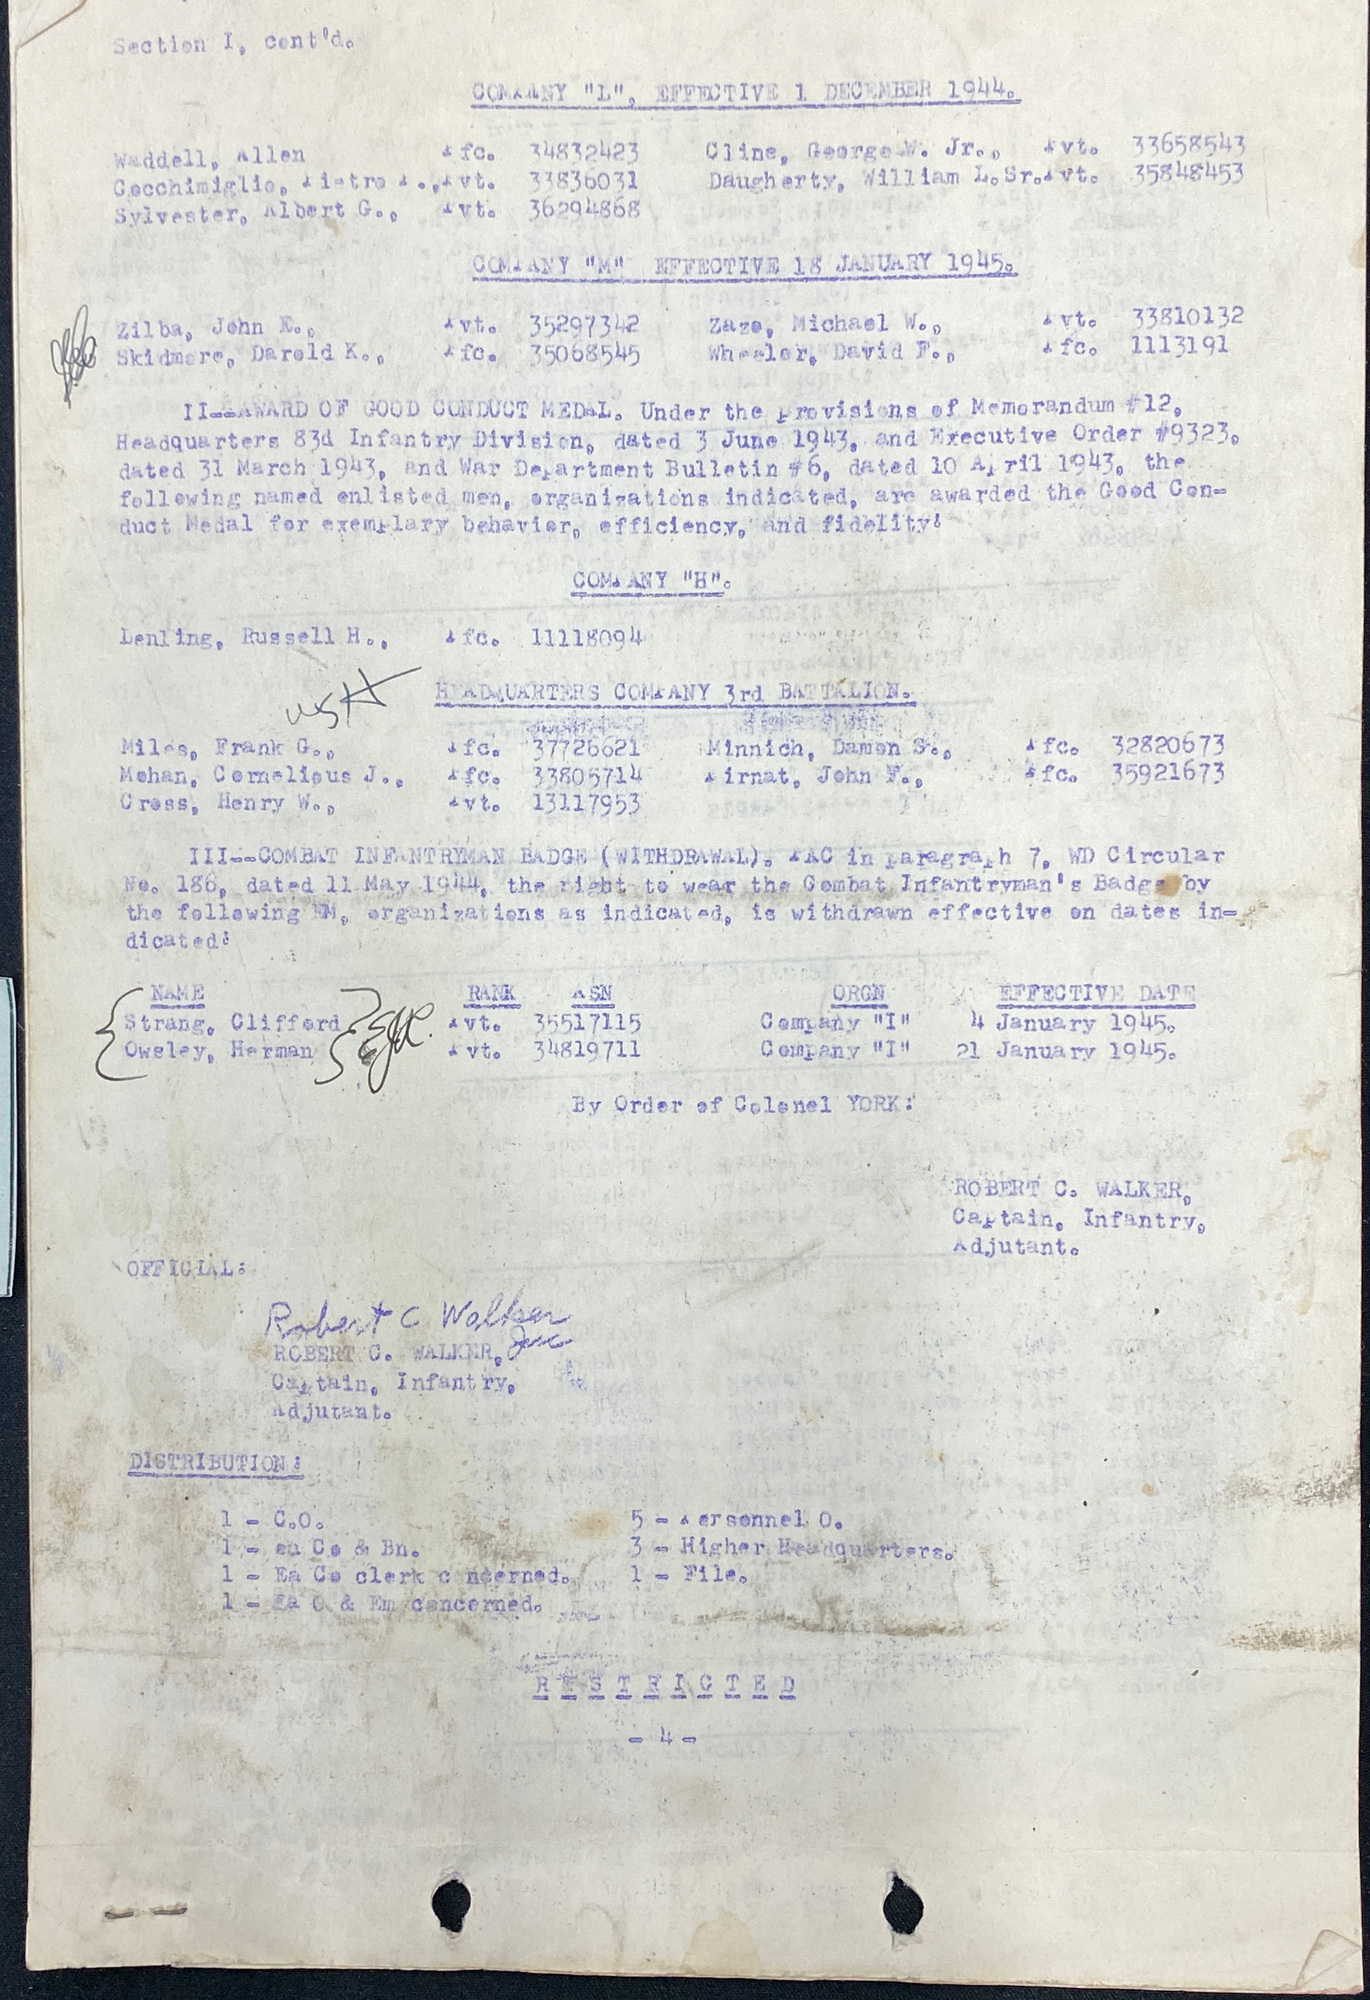 Section I, cont'd.
COMPANY "L", EFFECTIVE 1 DECEMBER 1944.
Waddell, Allen Pfc. 34832423 Cline, George W. Jr., Pvt. 33658543
Cocchimiglio, Pietro P., Pvt. 33836031 Daugherty, William L. Sr. Pvt. 35848453
Sylvester, Albert G., Pvt. 36294868
COMPANY "M" EFFECTIVE 18 JANUARY 1945.
Zilba, John E., Pvt. 35297342 Zazo, Michael W., Pvt. 33810132
Skidmore, Darold K., Pfc. 35068545 Wheeler, David F., Pfc. 1113191
II--AWARD OF GOOD CONDUCT MEDAL. Under the provisions of Memorandum #12,
Headquarters 83d Infantry Division, dated 3 June 1943, and Executive Order #9323,
dated 31 March 1943, and War Department Bulletin #6, dated 10 April 1943, the
following named enlisted men, organizations indicated, are awarded the Good Con-
duct Medal for exemplary behavior, efficiency, and fidelity:
COMPANY "H".
Denling, Russell H., Pfc. 11118094
HEADQUARTERS COMPANY 3rd BATTALION.
Miles, Frank G., Pfc. 37726621 Minnich, Damon S., Pfc. 32820673
Mohan, Cornelious J., Pfc. 33805714 Pirnat, John F., Pfc. 35921673
Cross, Henry W., Pvt. 13117953
III--COMBAT INFANTRYMAN BADGE (WITHDRAWAL). PAC in paragraph 7, WD Circular
No. 186, dated 11 May 1944, the right to wear the Combat Infantryman's Badge by
the following EM, organizations as indicated, is withdrawn effective on dates in-
dicated:
NAME RANK ASN ORGN EFFECTIVE DATE
Strang, Clifford Pvt. 35517115 Company "I" 4 January 1945.
Owsley, Herman Pvt. 34819711 Company "I" 21 January 1945.
By Order of Colonel YORK:
ROBERT C. WALKER,
Captain, Infantry,
Adjutant.
OFFICIAL:
Robert C Walker
ROBERT C. WALKER,
Captain, Infantry,
Adjutant.
DISTRIBUTION:
1 - C.O. 5 - Personnel O.
1 - ea Co & Bn. 3 - Higher Headquarters.
1 - Ea Co clerk concerned. 1 - File.
1 - Ea O & Em concerned.
RESTRICTED
- 4 -